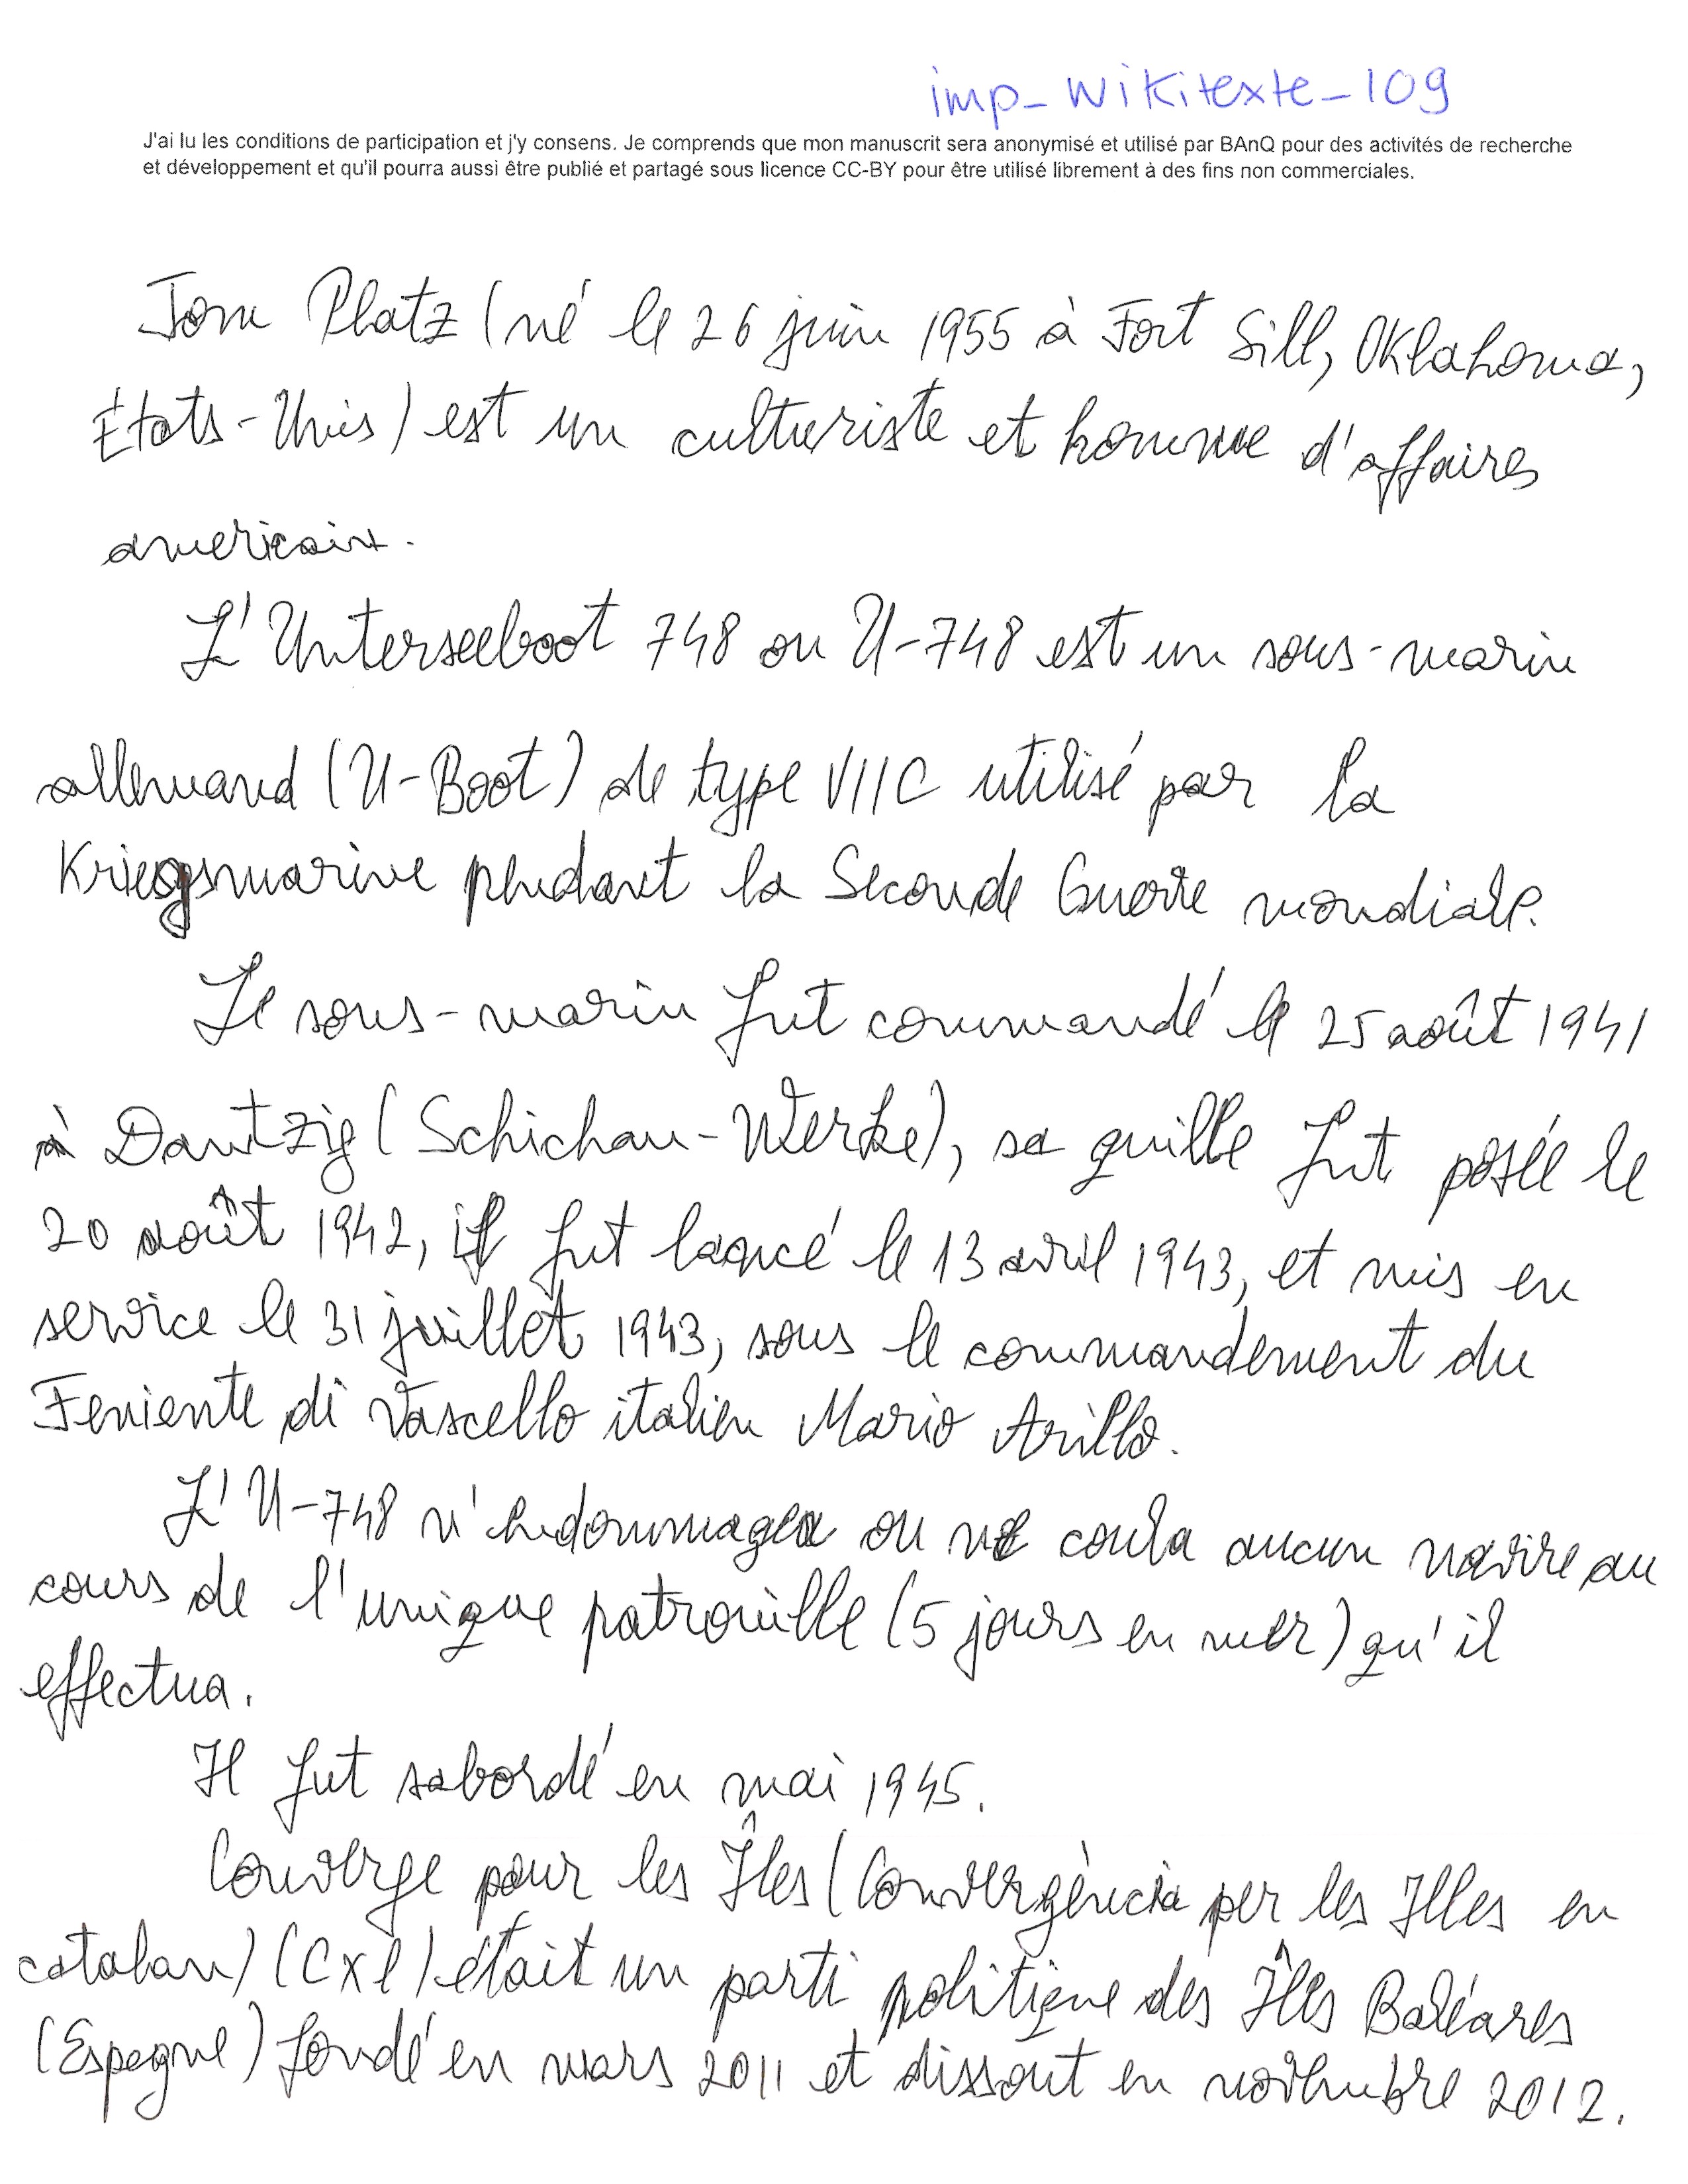 imp_wikitexte_109
J'ai lu les conditions de participation et j'y consens. Je comprends que mon manuscrit sera anonymisé et utilisé par BAnQ pour des activités de recherche
et développement et qu'il pourra aussi être publié et partagé sous licence CC-BY pour être utilisé librement à des fins non commerciales.
Tom Platz (né le 26 juin 1955 à Fort Sill, Oklahoma,
États-Unis) est un culturiste et homme d'affaires
americain.
L'Unterseeboot 748 ou U-748 est un sous-marin
allemand (U-Boot) de type VIIC utilisé par la
Kriegsmarine pendant la Seconde Guerre mondiale.
Le sous-marin fut commandé le 25 août 1941
à Dantzig (Schichau-Werke), sa quille fut posée le
20 août 1942, il fut lancé le 13 avril 1943, et mis en
service le 31 juillet 1943, sous le commandement du
Teniente di Vascello italien Mario Arillo.
L'U-748 n'endommagea ou ne coula aucun navire au
cours de l'unique patrouille (5 jours en mer) qu'il
effectua.
Il fut sabordé en mai 1945.
Converge pour les Îles (Convergència per les Illes en
catalan) (CxI) était un parti politique des Îles Baléares
(Espagne) fondé en mars 2011 et dissout en novembre 2012.